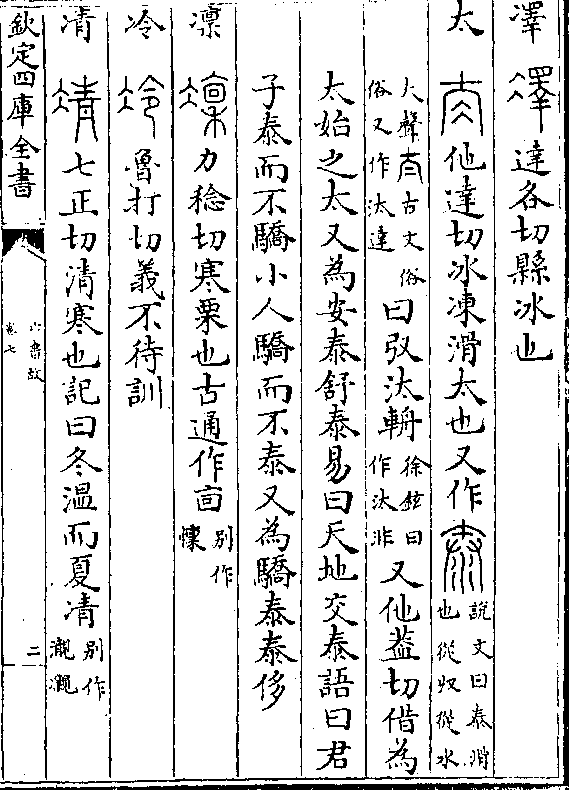 凙 達各切縣冰也
太 他達切冰凍滑太也又作 說文曰泰滑也從収從水
大聲夳古文俗俗又作汰達曰汰輈徐鉉曰作汰非又他葢切借為
太始之太又為安泰舒泰易曰天地交泰語曰君
子泰而不驕小人驕而不泰又為驕泰泰侈
凛 力稔切寒栗也古通作㐭别作懍
冷 魯打切義不待訓
凊 七正切清寒也記曰冬温而夏凊别作
欽定四庫全書
六書故
卷七
二